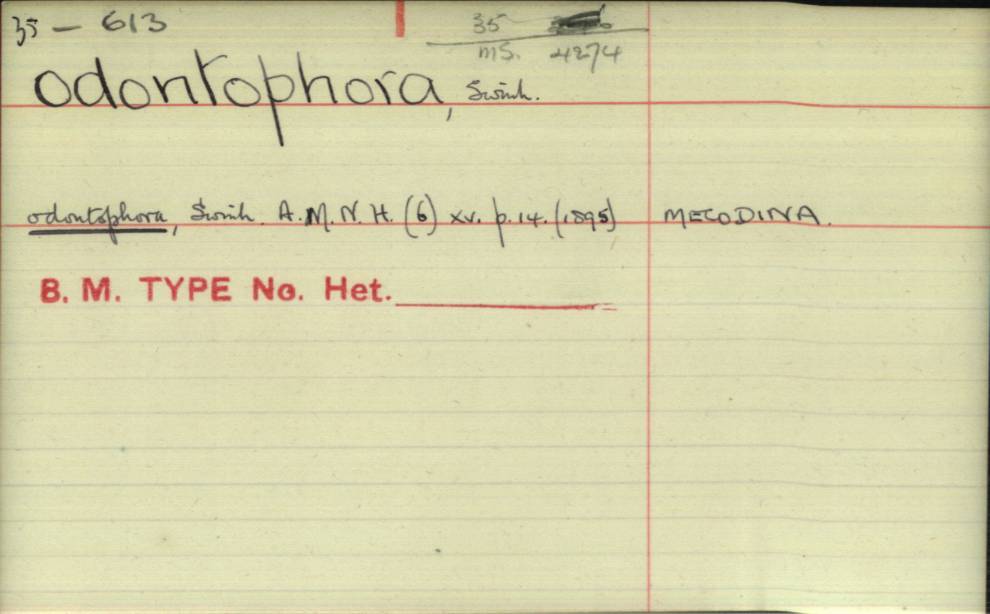 35 – 613
35
MS. 4274
odontophora, Swinh.
odontophora, Swinh. A.M.N.H. (6) xv. p.14. (1895) MECODINA.
B. M. TYPE No. Het.